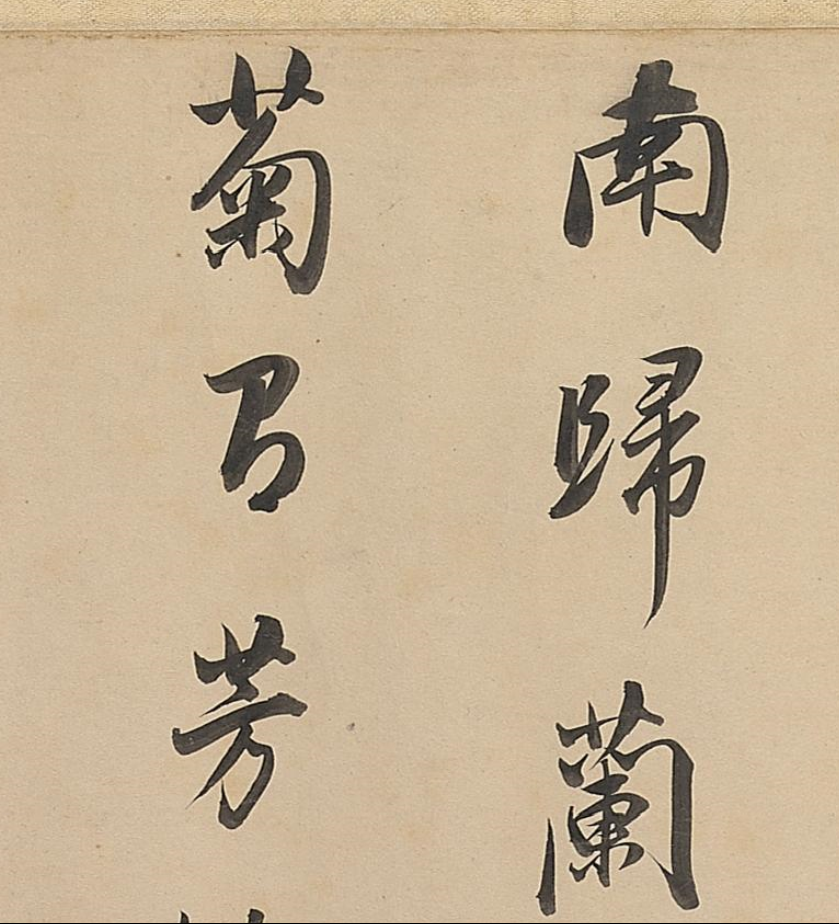 南歸蘭
菊有芳